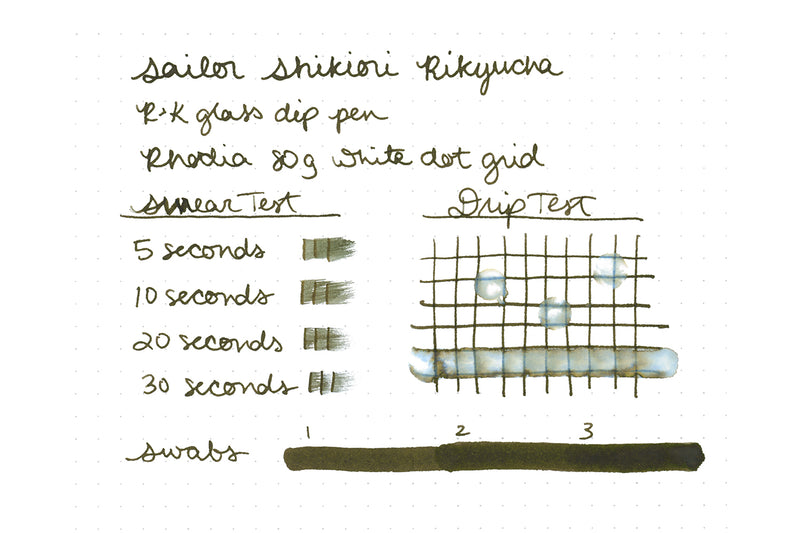 Sailor Shikiori Rikyucha
R+K glass dip pen
Rhodia 80g white dot grid
Smear Test
5 seconds
10 seconds
20 seconds
30 seconds
Drip Test
swabs 1 2 3